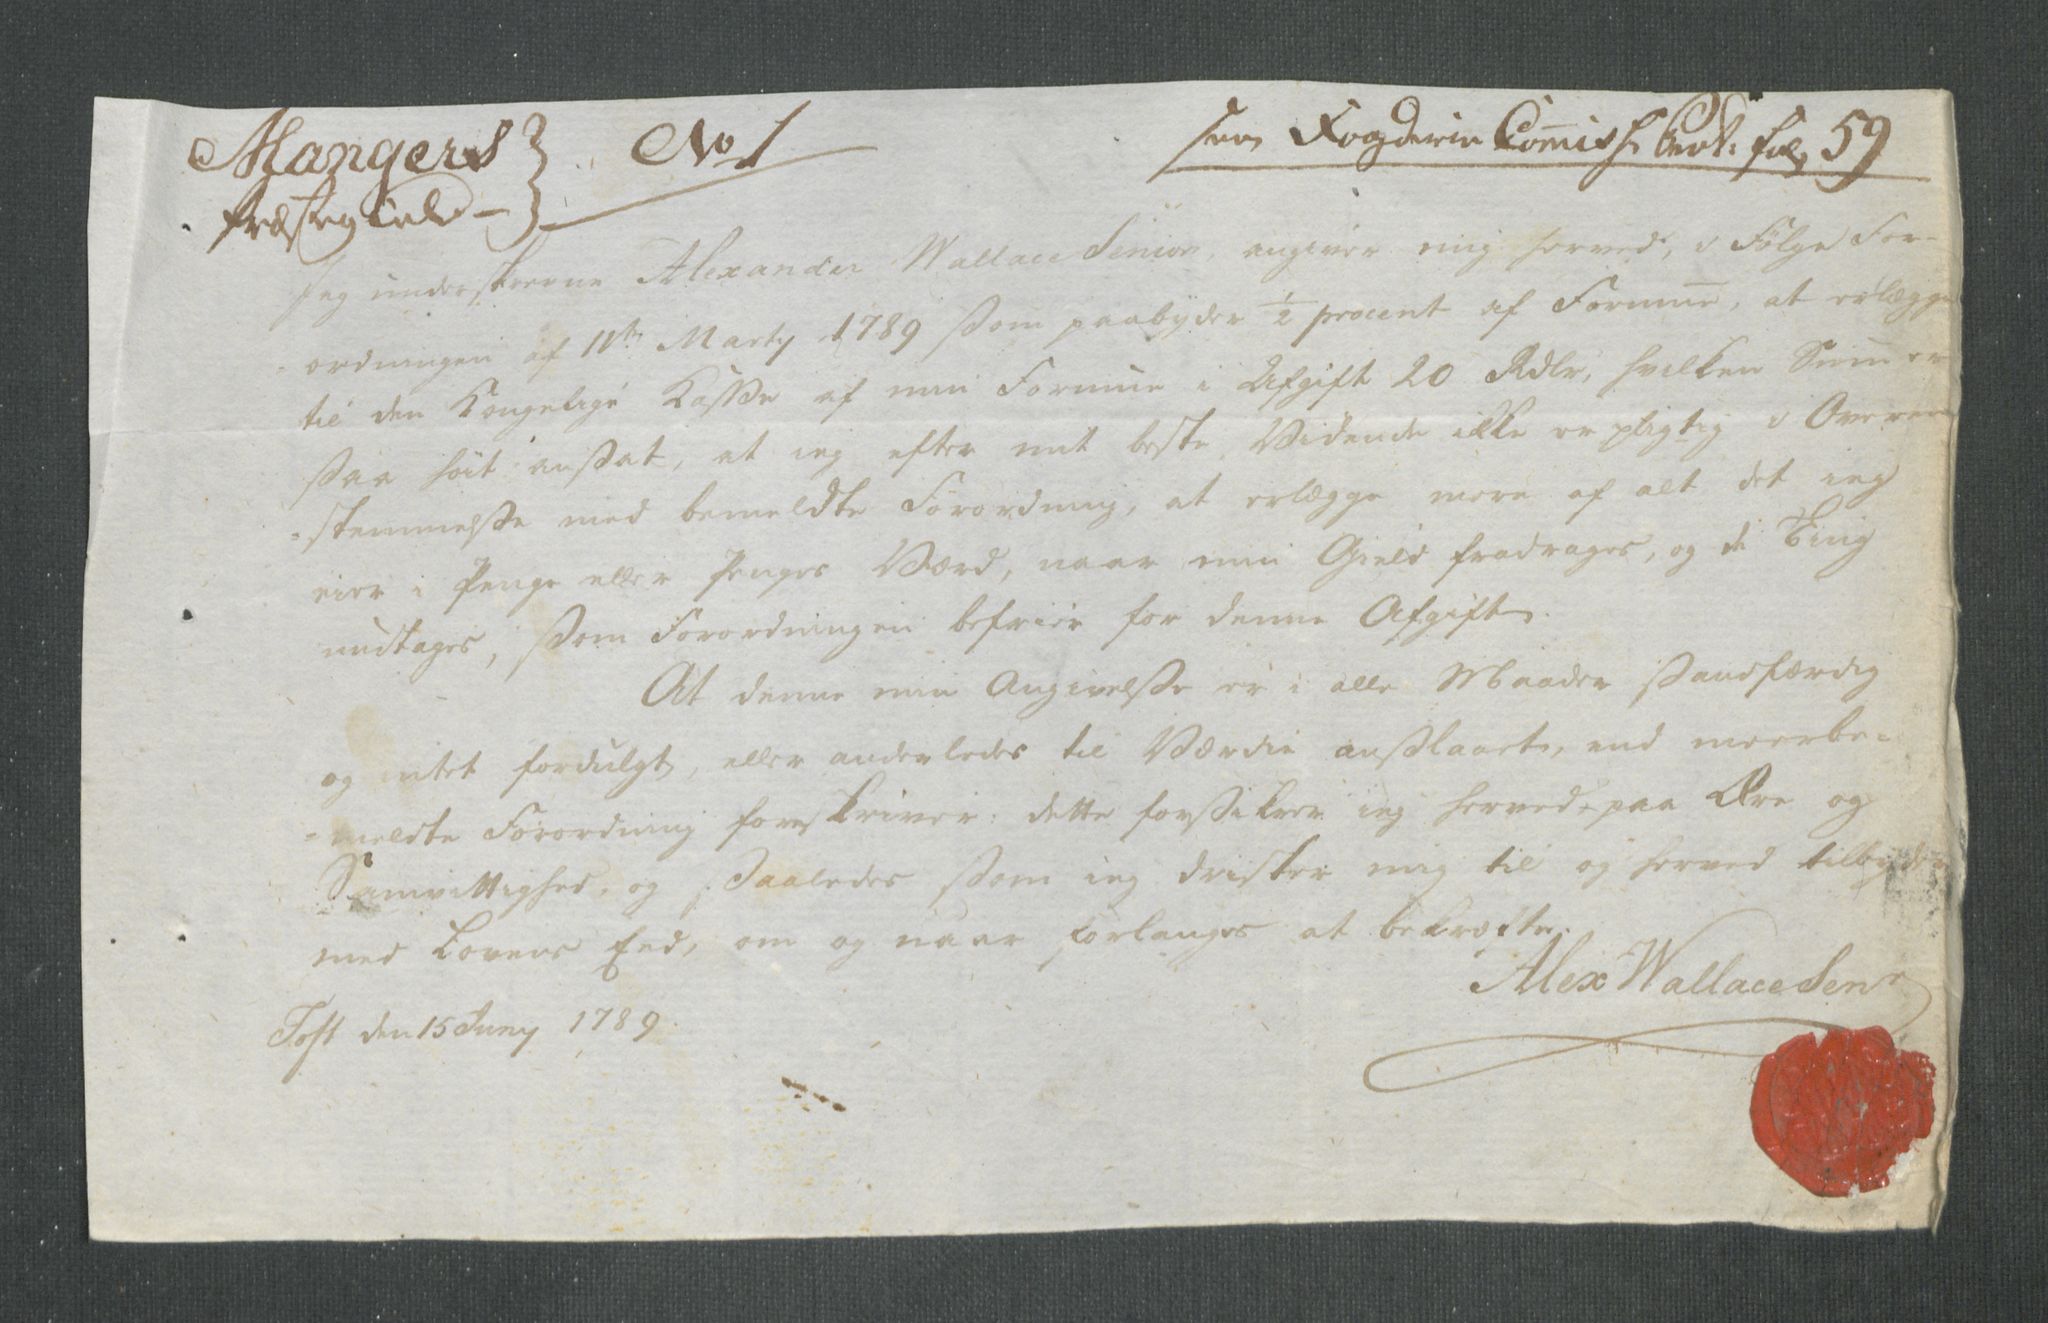 Mangers No 1
Præstegield
Fogderie Commiss. fol. 59
Jeg underskrevne Alexander Wallace Senior, angiver mig herved, i Følge For-
-ordningen af 11te Marty 1789 som paabyder 1/2 procent af Formue, at erlægge
til den Kongelige Kasse af min Formue i Afgift 20 Rdlr, hvilken Sum er
saa høit ansat, at ieg efter mit beste Vidende ikke er pligtig i Overeen
-stemmelse med bemeldte Forordning, at erlægge mere af alt det ieg
eier i Penge eller Penges Værd, naar min Gield fradrages, og de Ting
undtages, som Forordningen befrier for denne Afgift.
At denne min Angivelse er i alle Maader sandfærdig
og intet fordulgt, eller anderledes til Værdie anslaaet, end meerbe-
-meldte Forordning foreskriver: dette forsikrer ieg herved paa Ære og
Samvittighed, og saaledes som ieg drister mig til og herved tilbyder
med Lovens Eed, om og naar forlanges at bekræfte.
Alex Wallace Senr
Toft den 15 Juny 1789